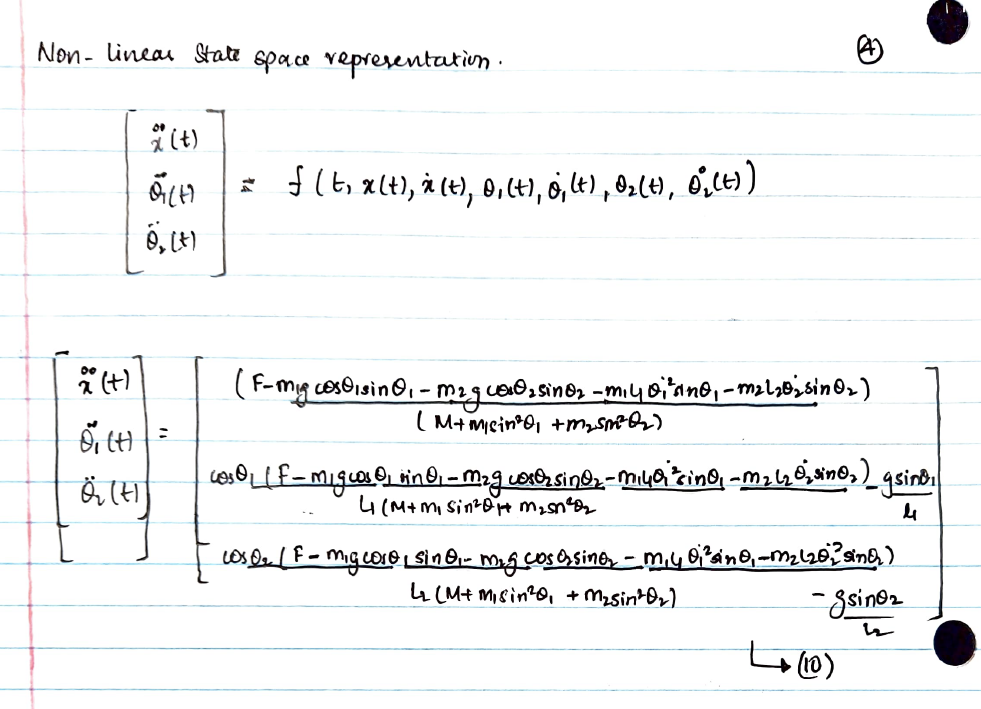 Non-linear State space representation. ④
[ẍ(t)
θ̈₁(t)
θ̈₂(t)] = f(t, x(t), ẋ(t), θ₁(t), θ̇₁(t), θ₂(t), θ̇₂(t))
[ẍ(t)
θ̈₁(t)
θ̈₂(t)] =
[(F-m₁g cosθ₁sinθ₁ - m₂g cosθ₂sinθ₂ - m₁l₁θ̇₁²sinθ₁ - m₂l₂θ̇₂sinθ₂)
(M+m₁sin²θ₁ + m₂sin²θ₂)
cosθ₁(F-m₁gcosθ₁sinθ₁ - m₂g cosθ₂sinθ₂ - m₁l₁θ̇₁²sinθ₁ - m₂l₂θ̇₂sinθ₂) - gsinθ₁
l₁(M+m₁sin²θ₁+ m₂sin²θ₂ l₁
cosθ₂(F-m₁gcosθ₁sinθ₁ - m₂g cosθ₂sinθ₂ - m₁l₁θ̇₁²sinθ₁ - m₂l₂θ̇₂²sinθ₂)
l₂(M+m₁sin²θ₁ + m₂sin²θ₂) - gsinθ₂
l₂]
↳ (10)